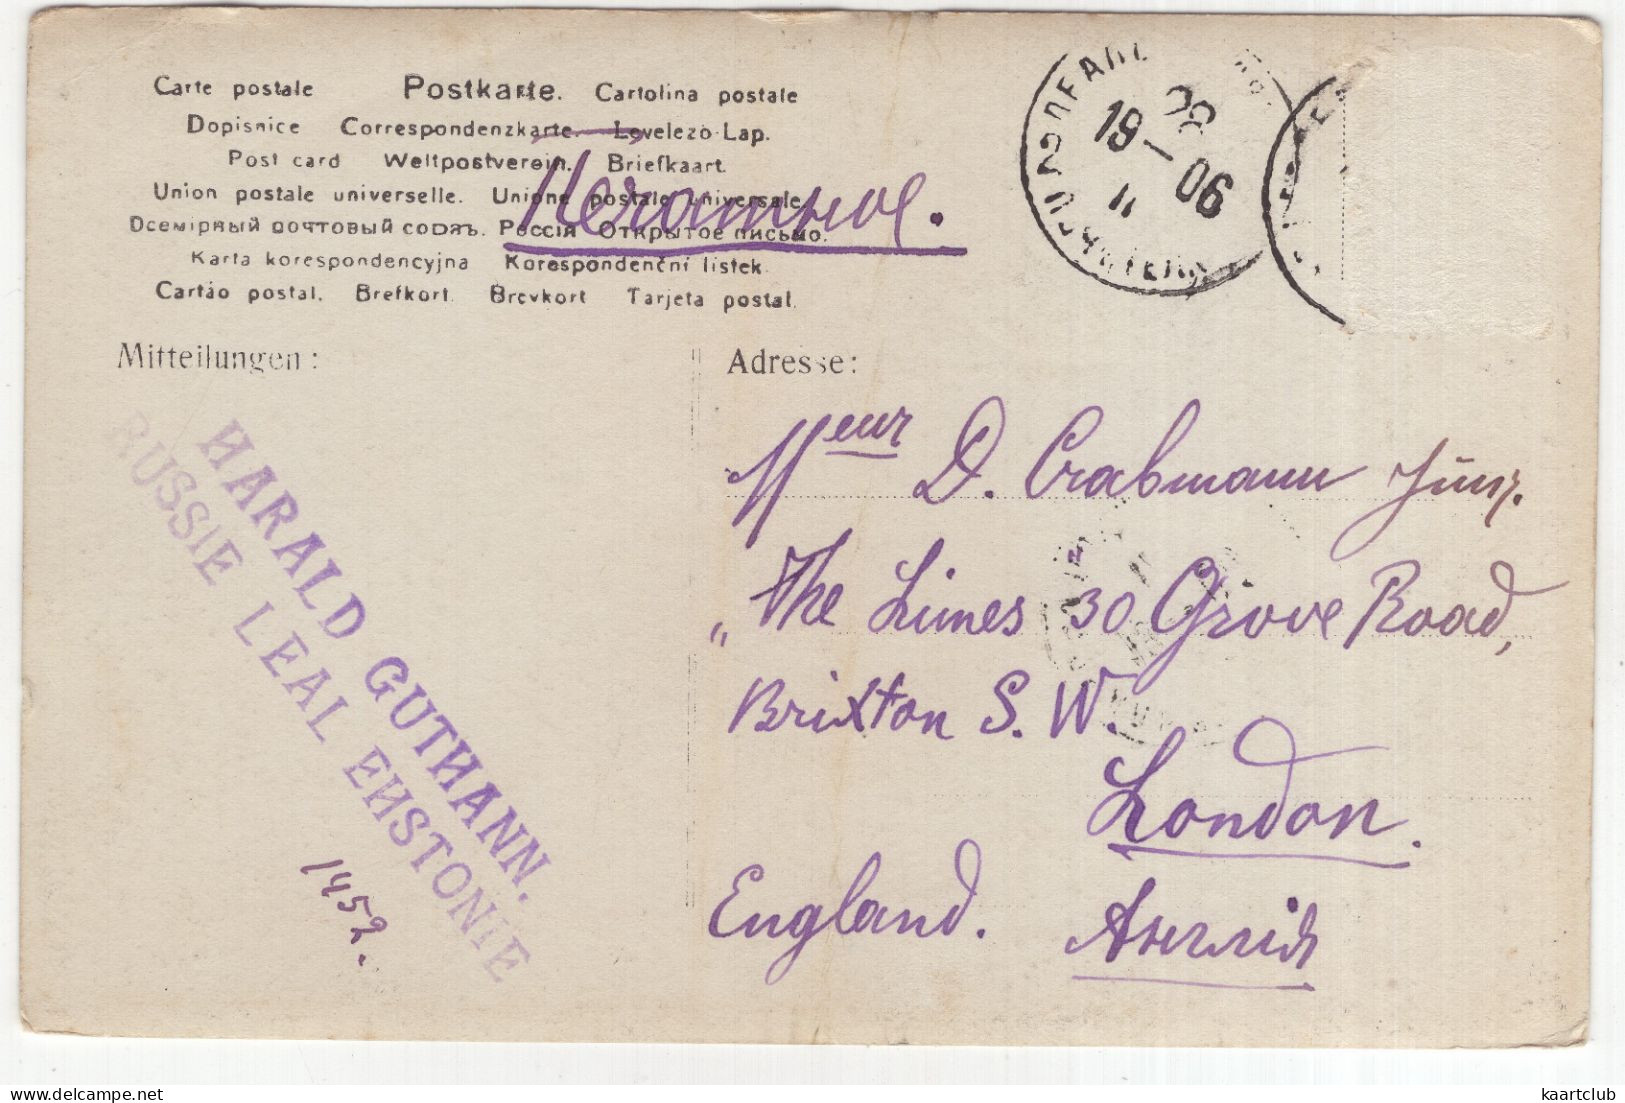 Carte postale Postkarte. Cartolina postale
Dopisnice Correspondenzkarte. Levelezo-Lap.
Post card Weltpostverein. Briefkaart.
Union postale universelle. Unione postale universale.
Всемірный почтовый союзъ. Россія Открытое письмо.
Karta korespondencyjna Korespondenční listek.
Cartão postal. Brefkort. Brevkort Tarjeta postal.
Печатное.
19 06
11
Mitteilungen:
Adresse:
HARALD GUTHANN.
RUSSIE LEAL EHSTONIE
1452.
Meur D. Crabmann Junr.
„The Limes 30 Grove Road,
Brixton S. W.
London.
England. Англія
kaartclub